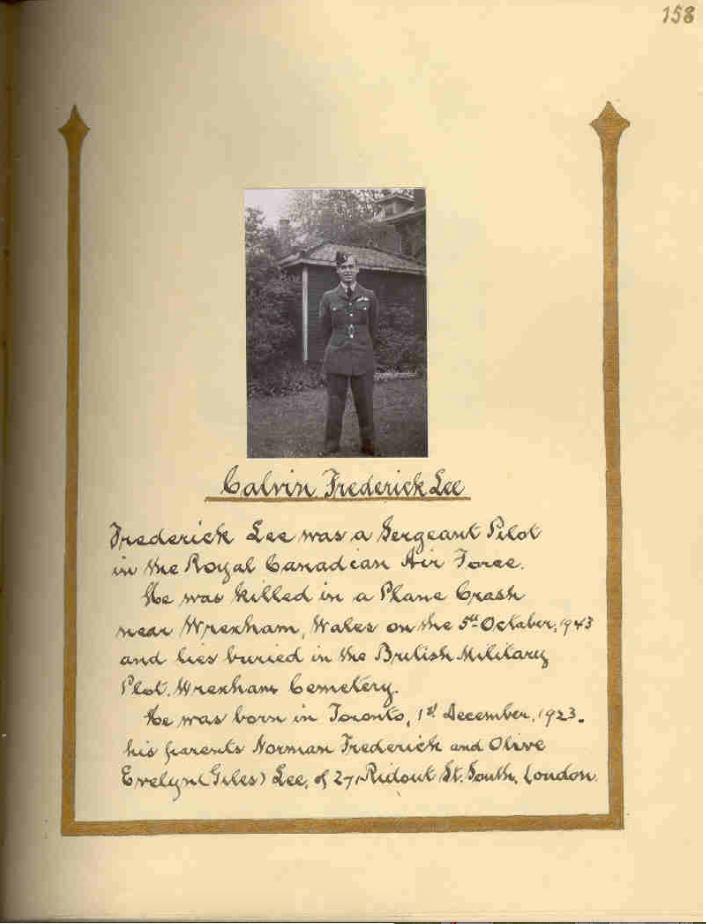 158
Calvin Frederick Lee
Frederick Lee was a Sergeant Pilot
in the Royal Canadian Air Force.
He was killed in a Plane Crash
near Wrexham, Wales on the 5th October, 1943
and lies buried in the British Military
Plot. Wrexham Cemetery.
He was born in Toronto, 1st December, 1923.
his parents Norman Frederick and Olive
Evelyn (Giles) Lee, of 27, Ridout St. South, London.